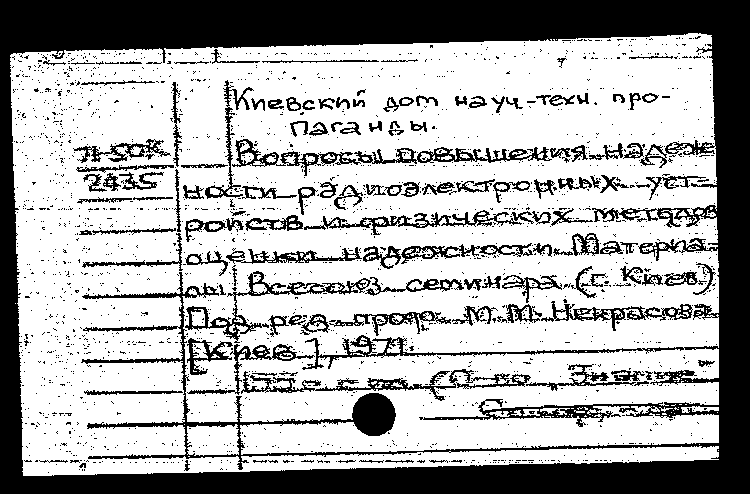 Киевский дом науч.-техн. про-
паганды.
71-50к
2435
Вопросы повышения надеж-
ности радиоэлектронных уст-
ройств и физических методов
оценки надежности. Материа-
лы Всесоюз. семинара (г. Киев)
Под ред. проф. М.М. Некрасова
[Киев], 1971.
(О-во "Знание"